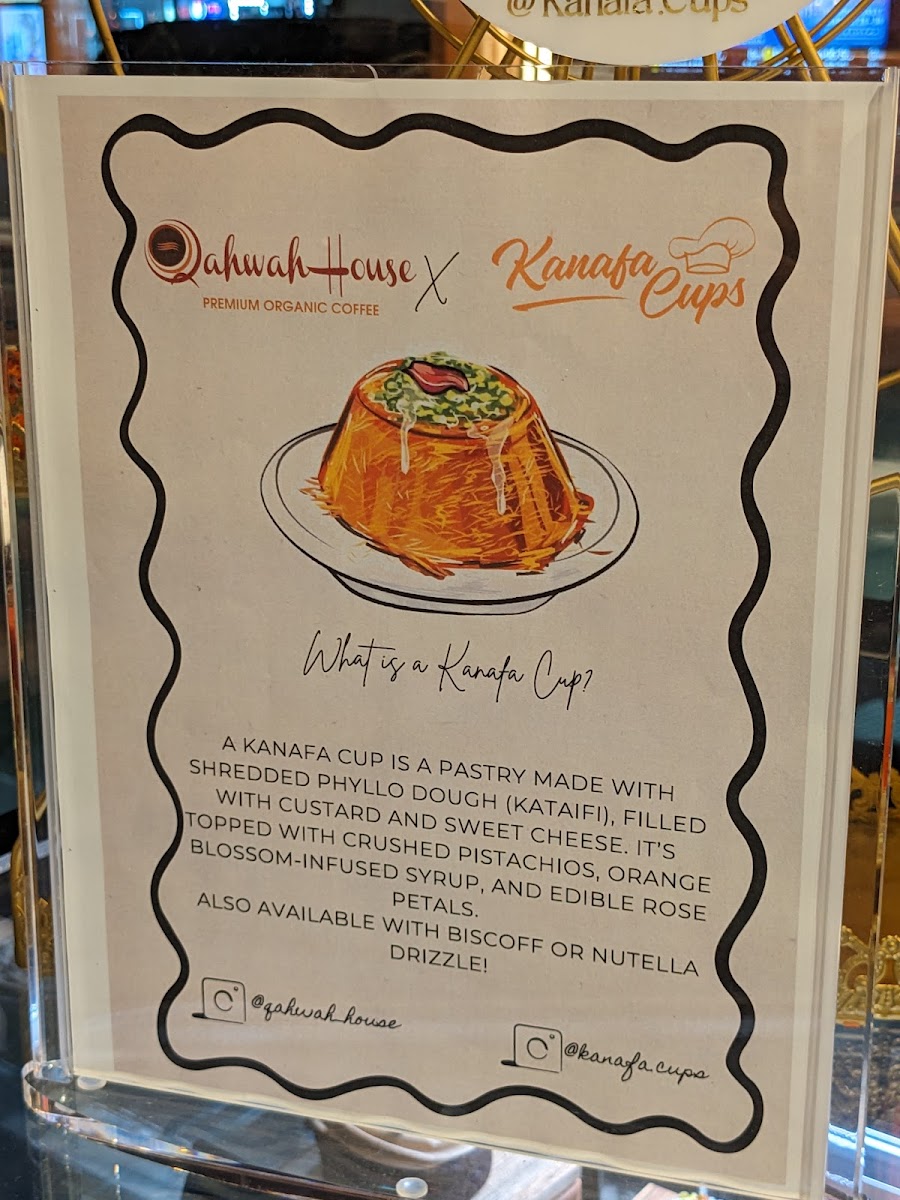 @Kanafa.Cups
Qahwah House
PREMIUM ORGANIC COFFEE
X
Kanafa
Cups
What is a Kanafa Cup?
A KANAFA CUP IS A PASTRY MADE WITH
SHREDDED PHYLLO DOUGH (KATAIFI), FILLED
WITH CUSTARD AND SWEET CHEESE. IT'S
TOPPED WITH CRUSHED PISTACHIOS, ORANGE
BLOSSOM-INFUSED SYRUP, AND EDIBLE ROSE
PETALS.
ALSO AVAILABLE WITH BISCOFF OR NUTELLA
DRIZZLE!
@qahwah_house
@kanafa.cups